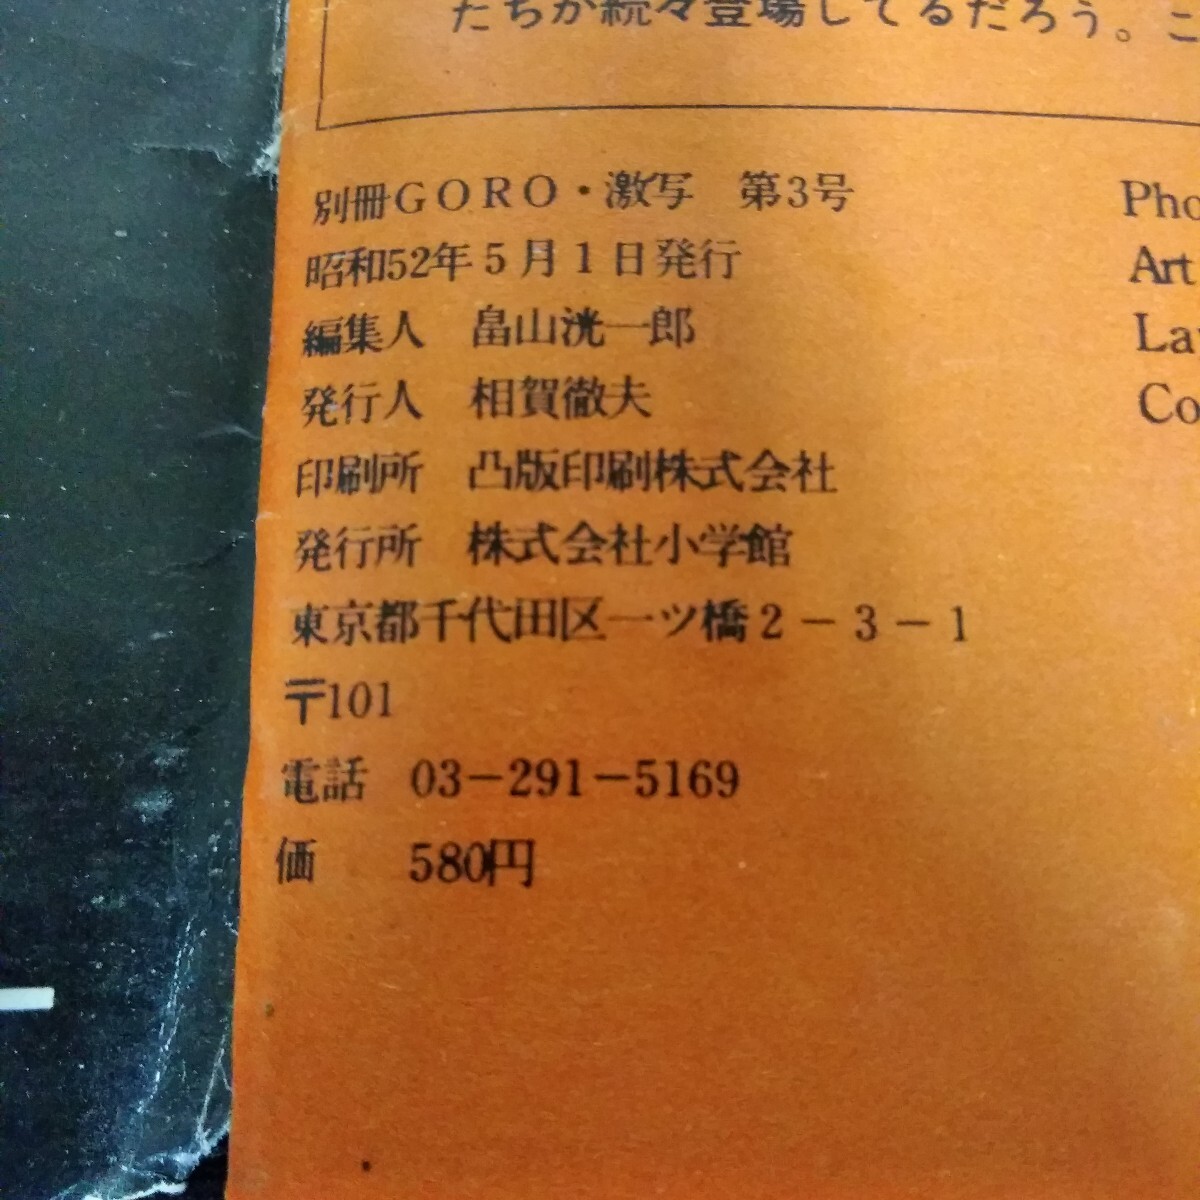 たちが続々登場してるだろう。こ
別冊GORO・激写　第3号
昭和52年5月1日発行
編集人　畠山洸一郎
発行人　相賀徹夫
印刷所　凸版印刷株式会社
発行所　株式会社小学館
東京都千代田区一ツ橋2－3－1
〒101
電話　03－291－5169
価　580円
Pho
Art
La
Co